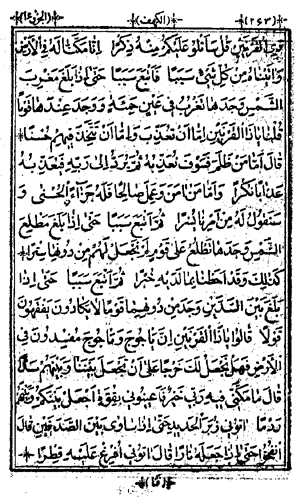 (٢٤٣) (الكهف)
ذِي الْقَرْنَيْنِ قُلْ سَأَتْلُو عَلَيْكُمْ مِنْهُ ذِكْرًا إِنَّا مَكَّنَّا لَهُ فِي الْأَرْضِ
وَآتَيْنَاهُ مِنْ كُلِّ شَيْءٍ سَبَبًا فَأَتْبَعَ سَبَبًا حَتَّى إِذَا بَلَغَ مَغْرِبَ
الشَّمْسِ وَجَدَهَا تَغْرُبُ فِي عَيْنٍ حَمِئَةٍ وَوَجَدَ عِنْدَهَا قَوْمًا
قُلْنَا يَاذَا الْقَرْنَيْنِ إِمَّا أَنْ تُعَذِّبَ وَإِمَّا أَنْ تَتَّخِذَ فِيهِمْ حُسْنًا
قَالَ أَمَّا مَنْ ظَلَمَ فَسَوْفَ نُعَذِّبُهُ ثُمَّ يُرَدُّ إِلَى رَبِّهِ فَيُعَذِّبُهُ
عَذَابًا نُكْرًا وَأَمَّا مَنْ آمَنَ وَعَمِلَ صَالِحًا فَلَهُ جَزَاءً الْحُسْنَى وَ
سَنَقُولُ لَهُ مِنْ أَمْرِنَا يُسْرًا ثُمَّ أَتْبَعَ سَبَبًا حَتَّى إِذَا بَلَغَ مَطْلِعَ
الشَّمْسِ وَجَدَهَا تَطْلُعُ عَلَى قَوْمٍ لَمْ نَجْعَلْ لَهُمْ مِنْ دُونِهَا سِتْرًا
كَذَلِكَ وَقَدْ أَحَطْنَا بِمَا لَدَيْهِ خُبْرًا ثُمَّ أَتْبَعَ سَبَبًا حَتَّى إِذَا
بَلَغَ بَيْنَ السَّدَّيْنِ وَجَدَ مِنْ دُونِهِمَا قَوْمًا لَا يَكَادُونَ يَفْقَهُونَ
قَوْلًا قَالُوا يَاذَا الْقَرْنَيْنِ إِنَّ يَأْجُوجَ وَمَأْجُوجَ مُفْسِدُونَ فِي
الْأَرْضِ فَهَلْ نَجْعَلُ لَكَ خَرْجًا عَلَى أَنْ تَجْعَلَ بَيْنَنَا وَبَيْنَهُمْ سَدًّا
قَالَ مَا مَكَّنِّي فِيهِ رَبِّي خَيْرٌ فَأَعِينُونِي بِقُوَّةٍ أَجْعَلْ بَيْنَكُمْ وَبَيْنَهُمْ
رَدْمًا آتُونِي زُبَرَ الْحَدِيدِ حَتَّى إِذَا سَاوَى بَيْنَ الصَّدَفَيْنِ قَالَ
انْفُخُوا حَتَّى إِذَا جَعَلَهُ نَارًا قَالَ آتُونِي أُفْرِغْ عَلَيْهِ قِطْرًا
(فما)